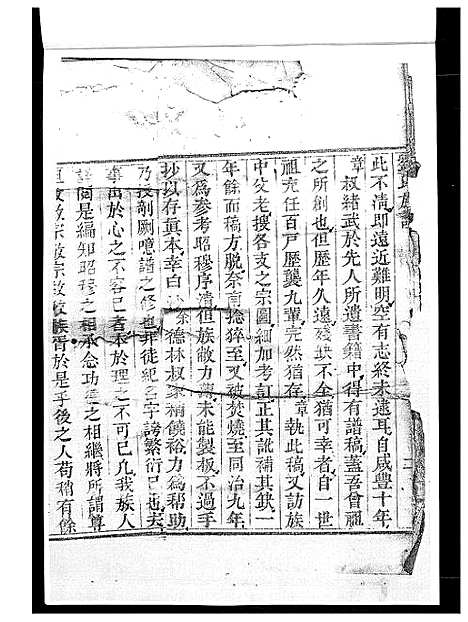 此不清即遠近難明空有志終未逮耳自咸豐十年
章叔緒武於先人所遺書籍中得有譜稿蓋吾曾祖
之所創也但歷年久遠殘缺不全猶可幸者自一世
祖充任百戸歷襲九輩完然猶存章執此稿又訪族
中父老搜各支之宗圖細加考訂正其訛補其缺一
年餘而稿方脫奈南捻猝至又被焚燒至同治九年
又為参考昭穆序清但族敝力薄未能製板不過手
抄以存真本幸白沙徐德林叔家稍饒裕力為帮助
乃授剞劂噫譜之修也非徒紀名字誇繁衍已也夫
出於心之不容已者本於理之不可已凡我族人
閲是編知昭穆之相承念功德之相繼將所謂尊
敬宗敬宗收族胥於是乎後之人苟稍有餘